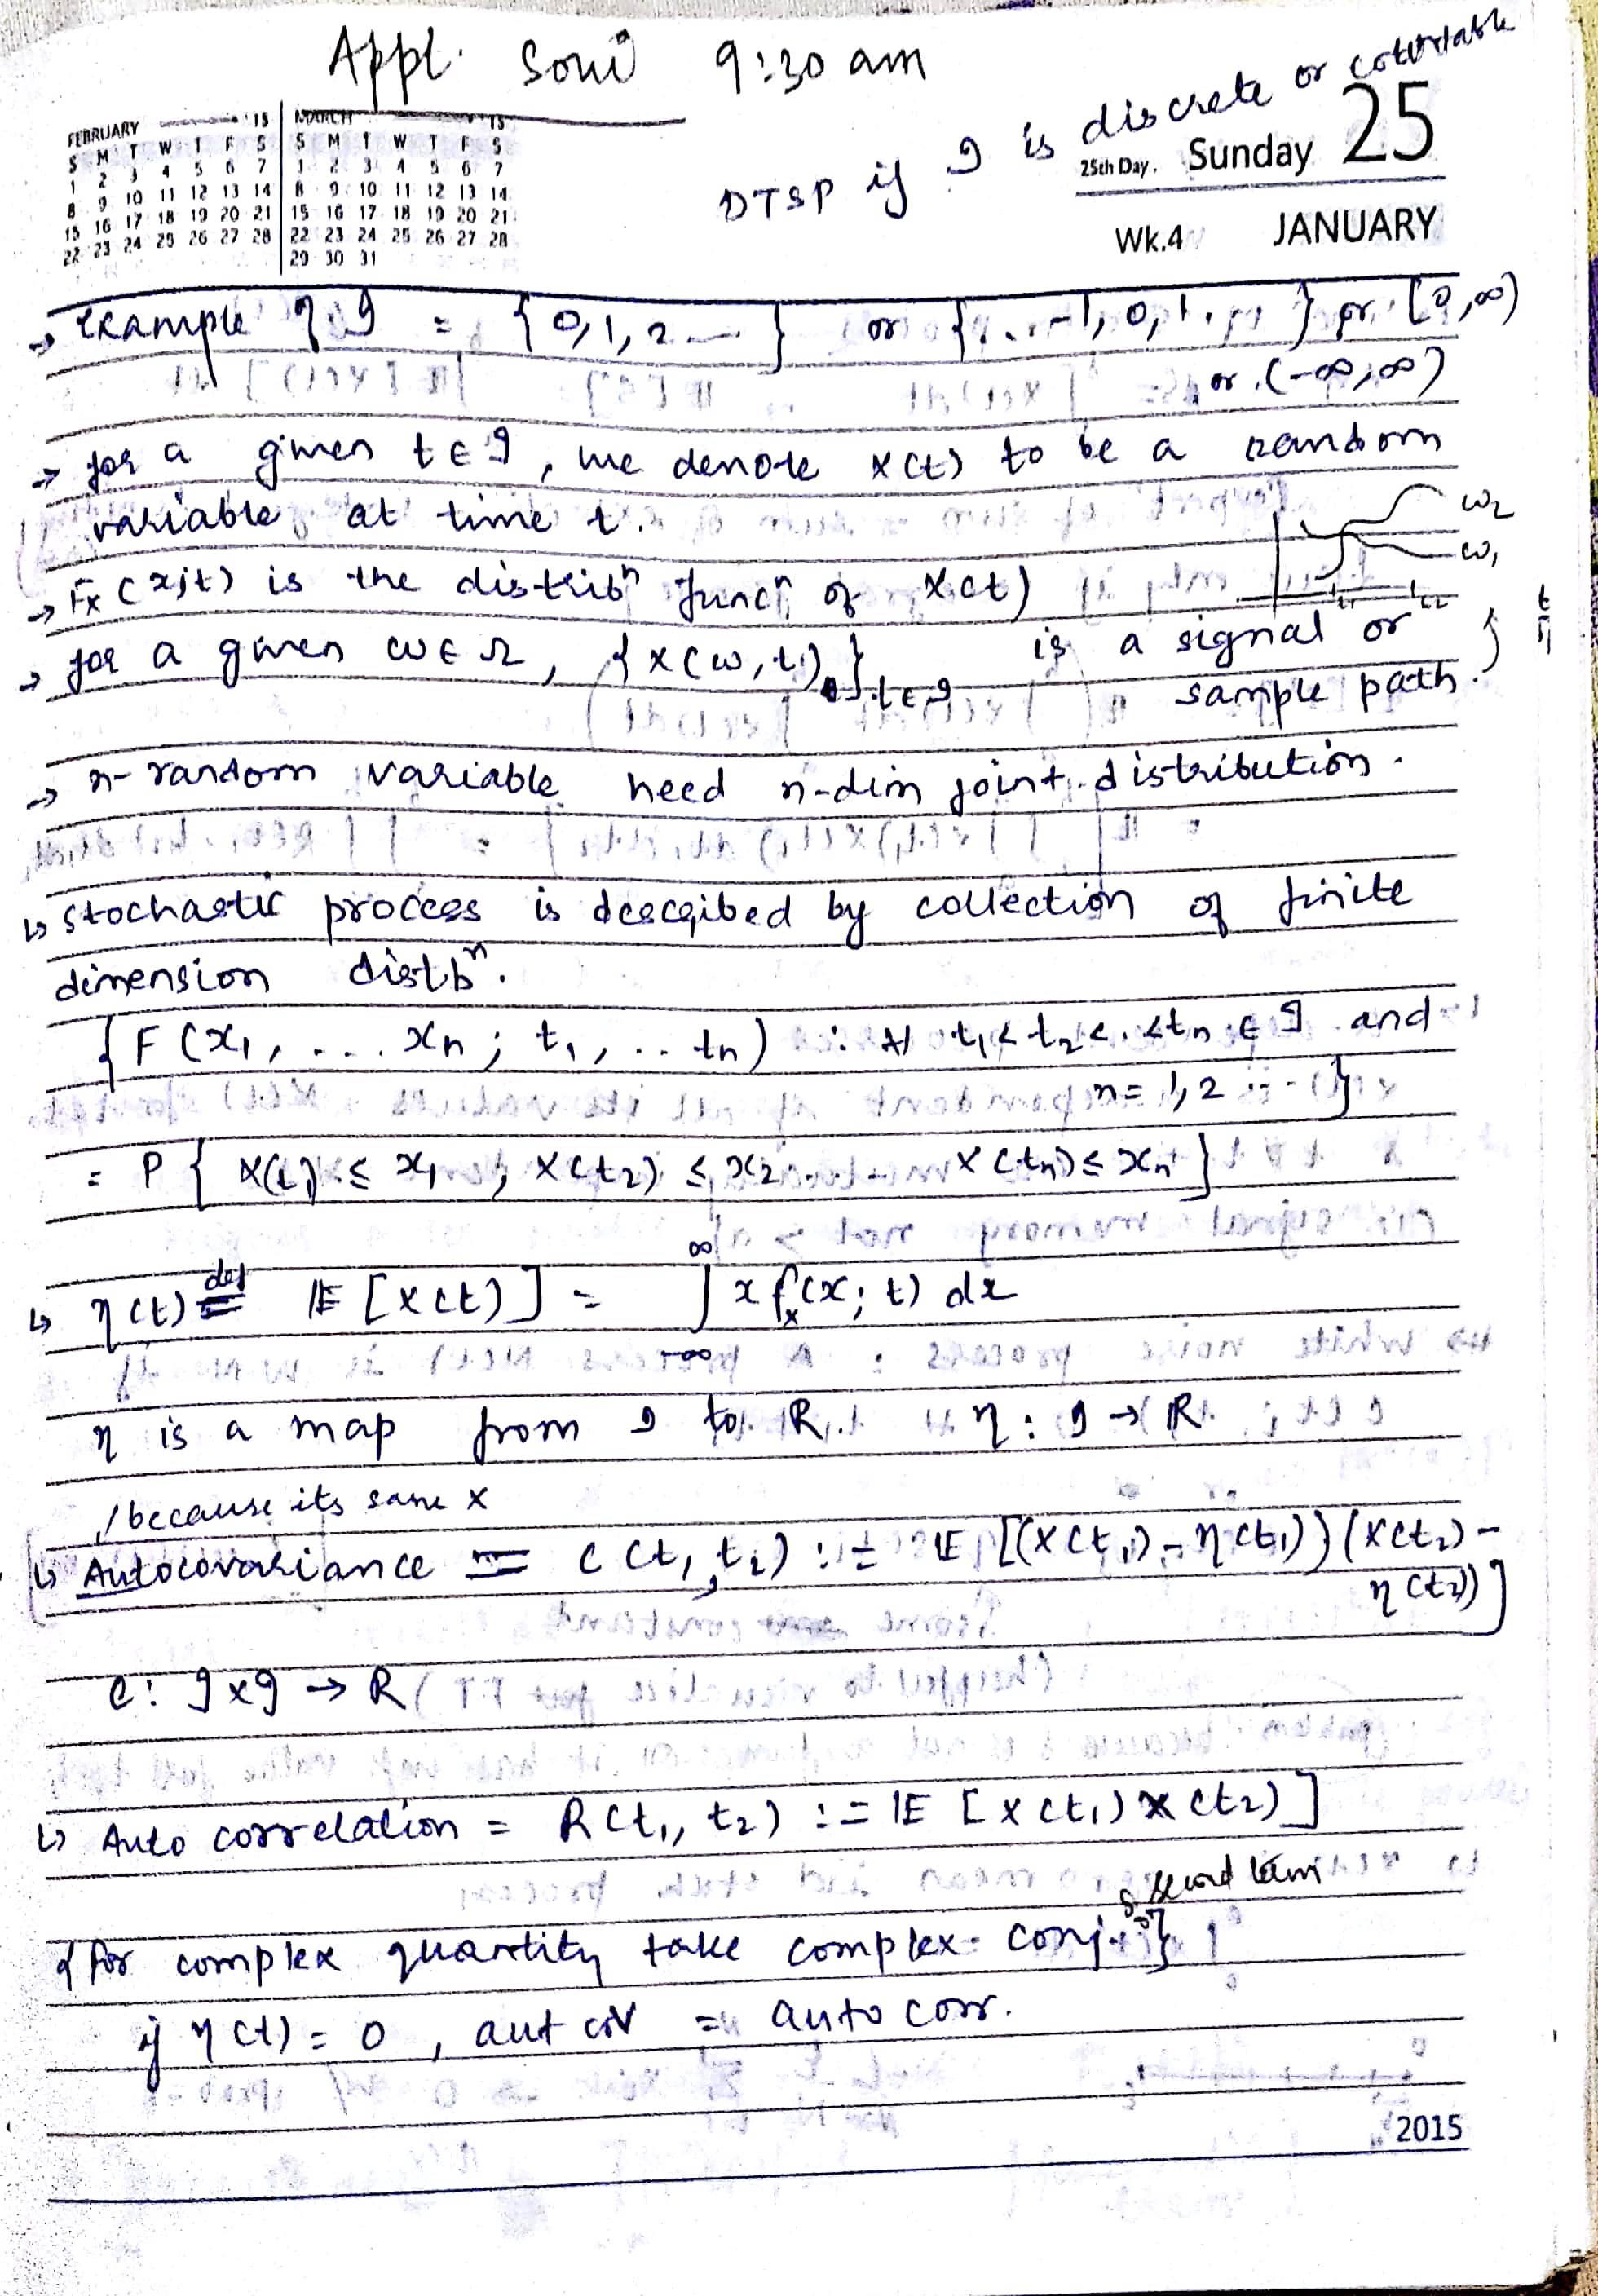 Appl. Soni 9:30 am
DTSP if I is discrete or countable
FEBRUARY '15
S M T W T F S
1 2 3 4 5 6 7
8 9 10 11 12 13 14
15 16 17 18 19 20 21
22 23 24 25 26 27 28
MARCH '15
S M T W T F S
1 2 3 4 5 6 7
8 9 10 11 12 13 14
15 16 17 18 19 20 21
22 23 24 25 26 27 28
29 30 31
25th Day. Sunday 25
Wk.4 JANUARY
→ example of I = {0,1,2 ...} or {... -1, 0, 1 ...} or [0,∞)
or (-∞,∞)
→ for a given t ∈ I, we denote X(t) to be a random
variable at time t.
ω2
ω1
t1 t2
→ Fx(x;t) is the distribⁿ funcⁿ of X(t)
→ for a given ω ∈ Ω, {X(ω,t)}t∈I is a signal or
sample path.}
→ n-random variable need n-dim joint distribution.
↳ stochastic process is descqibed by collection of finite
dimension distbⁿ.
{F(x1, ... xn; t1, .. tn) : ∀ t1 < t2 < . < tn ∈ I and
n = 1,2 ...}
= P{X(t1) ≤ x1, X(t2) ≤ x2 ... X(tn) ≤ xn}
↳ η(t) def= IE[X(t)] = ∫ from -∞ to ∞ x fx(x;t) dx
η is a map from I to R. η : I → R
because its same X
↳ Autocovariance = C(t1,t2) := IE[(X(t1) - η(t1))(X(t2) -
η(t2))]
C: I×I → R
↳ Auto correlation = R(t1, t2) := IE[X(t1) X(t2)]
of second term
{for complex quantity take complex conj.}
if η(t) = 0, aut cov = auto corr.
2015